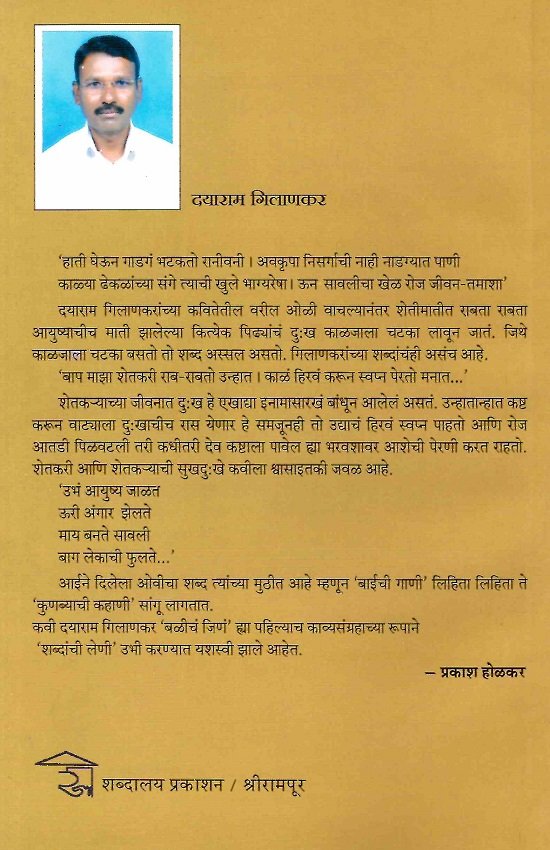 दयाराम गिलाणकर
'हाती घेऊन गाडगं भटकतो रानीवनी । अवकृपा निसर्गाची नाही नाडग्यात पाणी
काळ्या ढेकळांच्या संगे त्याची खुले भाग्यरेषा। ऊन सावलीचा खेळ रोज जीवन-तमाशा'
दयाराम गिलाणकरांच्या कवितेतील वरील ओळी वाचल्यानंतर शेतीमातीत राबता राबता
आयुष्याचीच माती झालेल्या कित्येक पिढ्यांचं दुःख काळजाला चटका लावून जातं. जिथे
काळजाला चटका बसतो तो शब्द अस्सल असतो. गिलाणकरांच्या शब्दांचंही असंच आहे.
'बाप माझा शेतकरी राब-राबतो उन्हात । काळं हिरवं करून स्वप्न पेरतो मनात...'
शेतकऱ्याच्या जीवनात दुःख हे एखाद्या इनामासारखं बांधून आलेलं असतं. उन्हातान्हात कष्ट
करून वाट्याला दुःखाचीच रास येणार हे समजूनही तो उद्याचं हिरवं स्वप्न पाहतो आणि रोज
आतडी पिळवटली तरी कधीतरी देव कष्टाला पावेल ह्या भरवशावर आशेची पेरणी करत राहतो.
शेतकरी आणि शेतकऱ्याची सुखदुःखे कवीला श्वासाइतकी जवळ आहे.
'उभं आयुष्य जाळत
ऊरी अंगार झेलते
माय बनते सावली
बाग लेकाची फुलते...'
आईने दिलेला ओवीचा शब्द त्यांच्या मुठीत आहे म्हणून 'बाईची गाणी' लिहिता लिहिता ते
'कुणब्याची कहाणी' सांगू लागतात.
कवी दयाराम गिलाणकर 'बळीचं जिणं' ह्या पहिल्याच काव्यसंग्रहाच्या रूपाने
'शब्दांची लेणी' उभी करण्यात यशस्वी झाले आहेत.
– प्रकाश होळकर
शब्दालय प्रकाशन / श्रीरामपूर